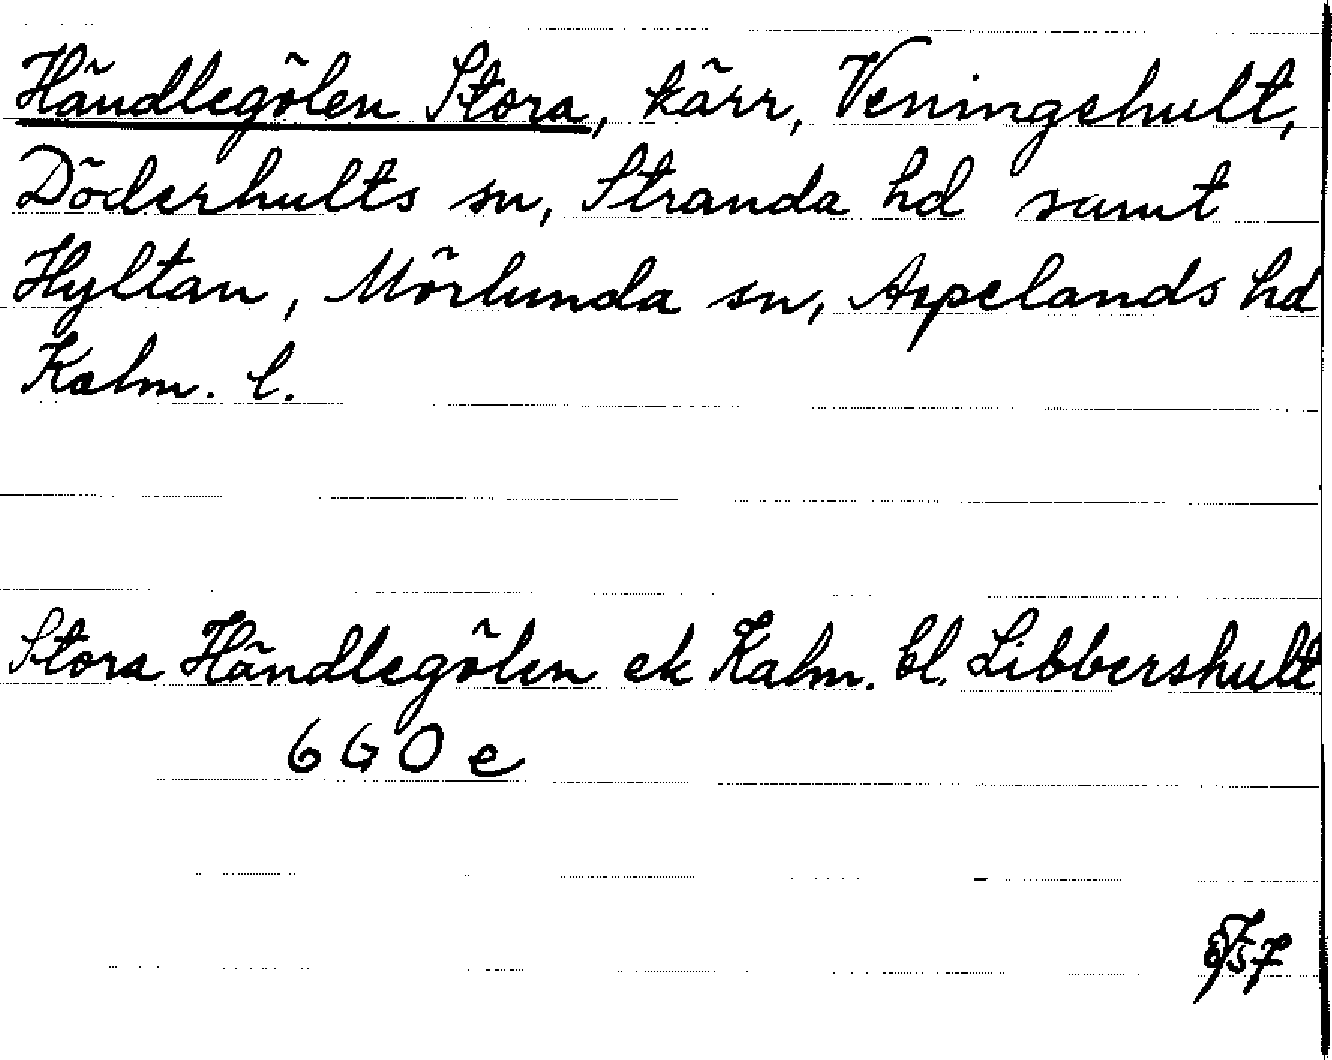 Händlegölen Stora, kärr, Veningehult,
Döderhults sn, Stranda hd samt
Hyltan, Mörlunda sn, Aspelands hd
Kalm. l.
Stora Händlegölen ek Kalm. bl. Libbershult
6 G O e